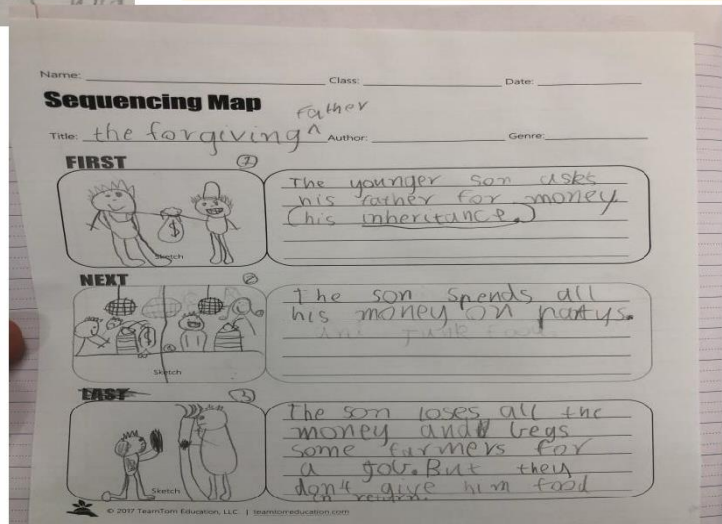 Name: Class: Date:
Sequencing Map
Father
Title: the forgiving ^ Author: Genre:
FIRST
The younger son asks
his father for money
(his inheritance.)
$
Sketch
NEXT
The son spends all
his money on partys.
$
Sketch
LAST
3
The son loses all the
money and begs
some farmers for
a job. But they
don't give him food
in return.
Sketch
© 2017 TearnTom Education, LLC | tearntomeducation.com